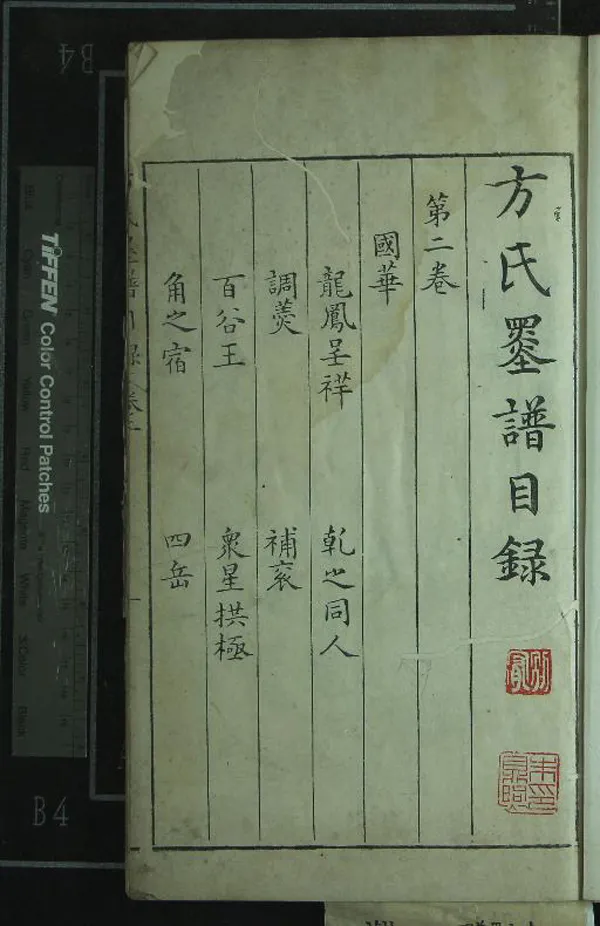 方氏墨譜目録
第二卷
國華
龍鳳呈祥 乾之同人
調羹 補衮
百谷王 衆星拱極
角之宿 四岳
TIFFEN Color Control Patches
B4
B4